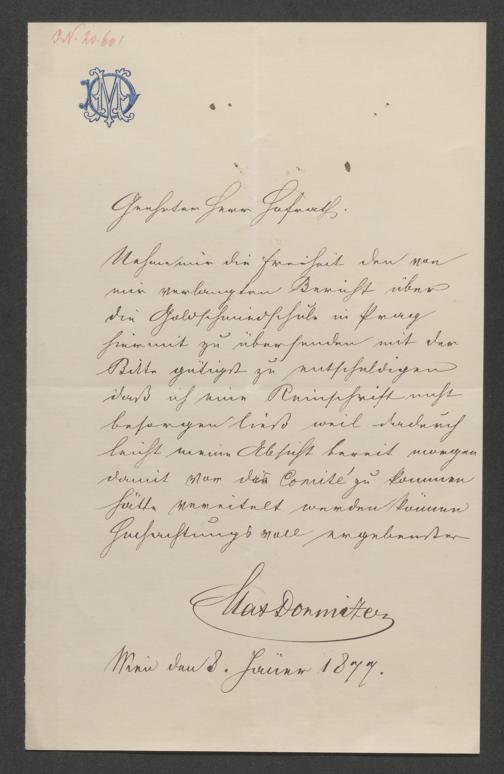 J.N. 20.601
MD
Geehrter Herr Hofrath.
Nehme mir die Freiheit den von
mir verlangten Bericht über
die Goldschmiedschule in Prag
hiermit zu übersenden mit der
Bitte gütigst zu entschuldigen
daß ich eine Reinschrift nicht
besorgen ließ weil dadurch
leicht meine Absicht bereit morgen
damit vor das Comité zu kommen
hätte vereitelt werden können
Hochachtungsvoll ergebenster
Max Dormitzer
Wien den 8. Jäner 1877.